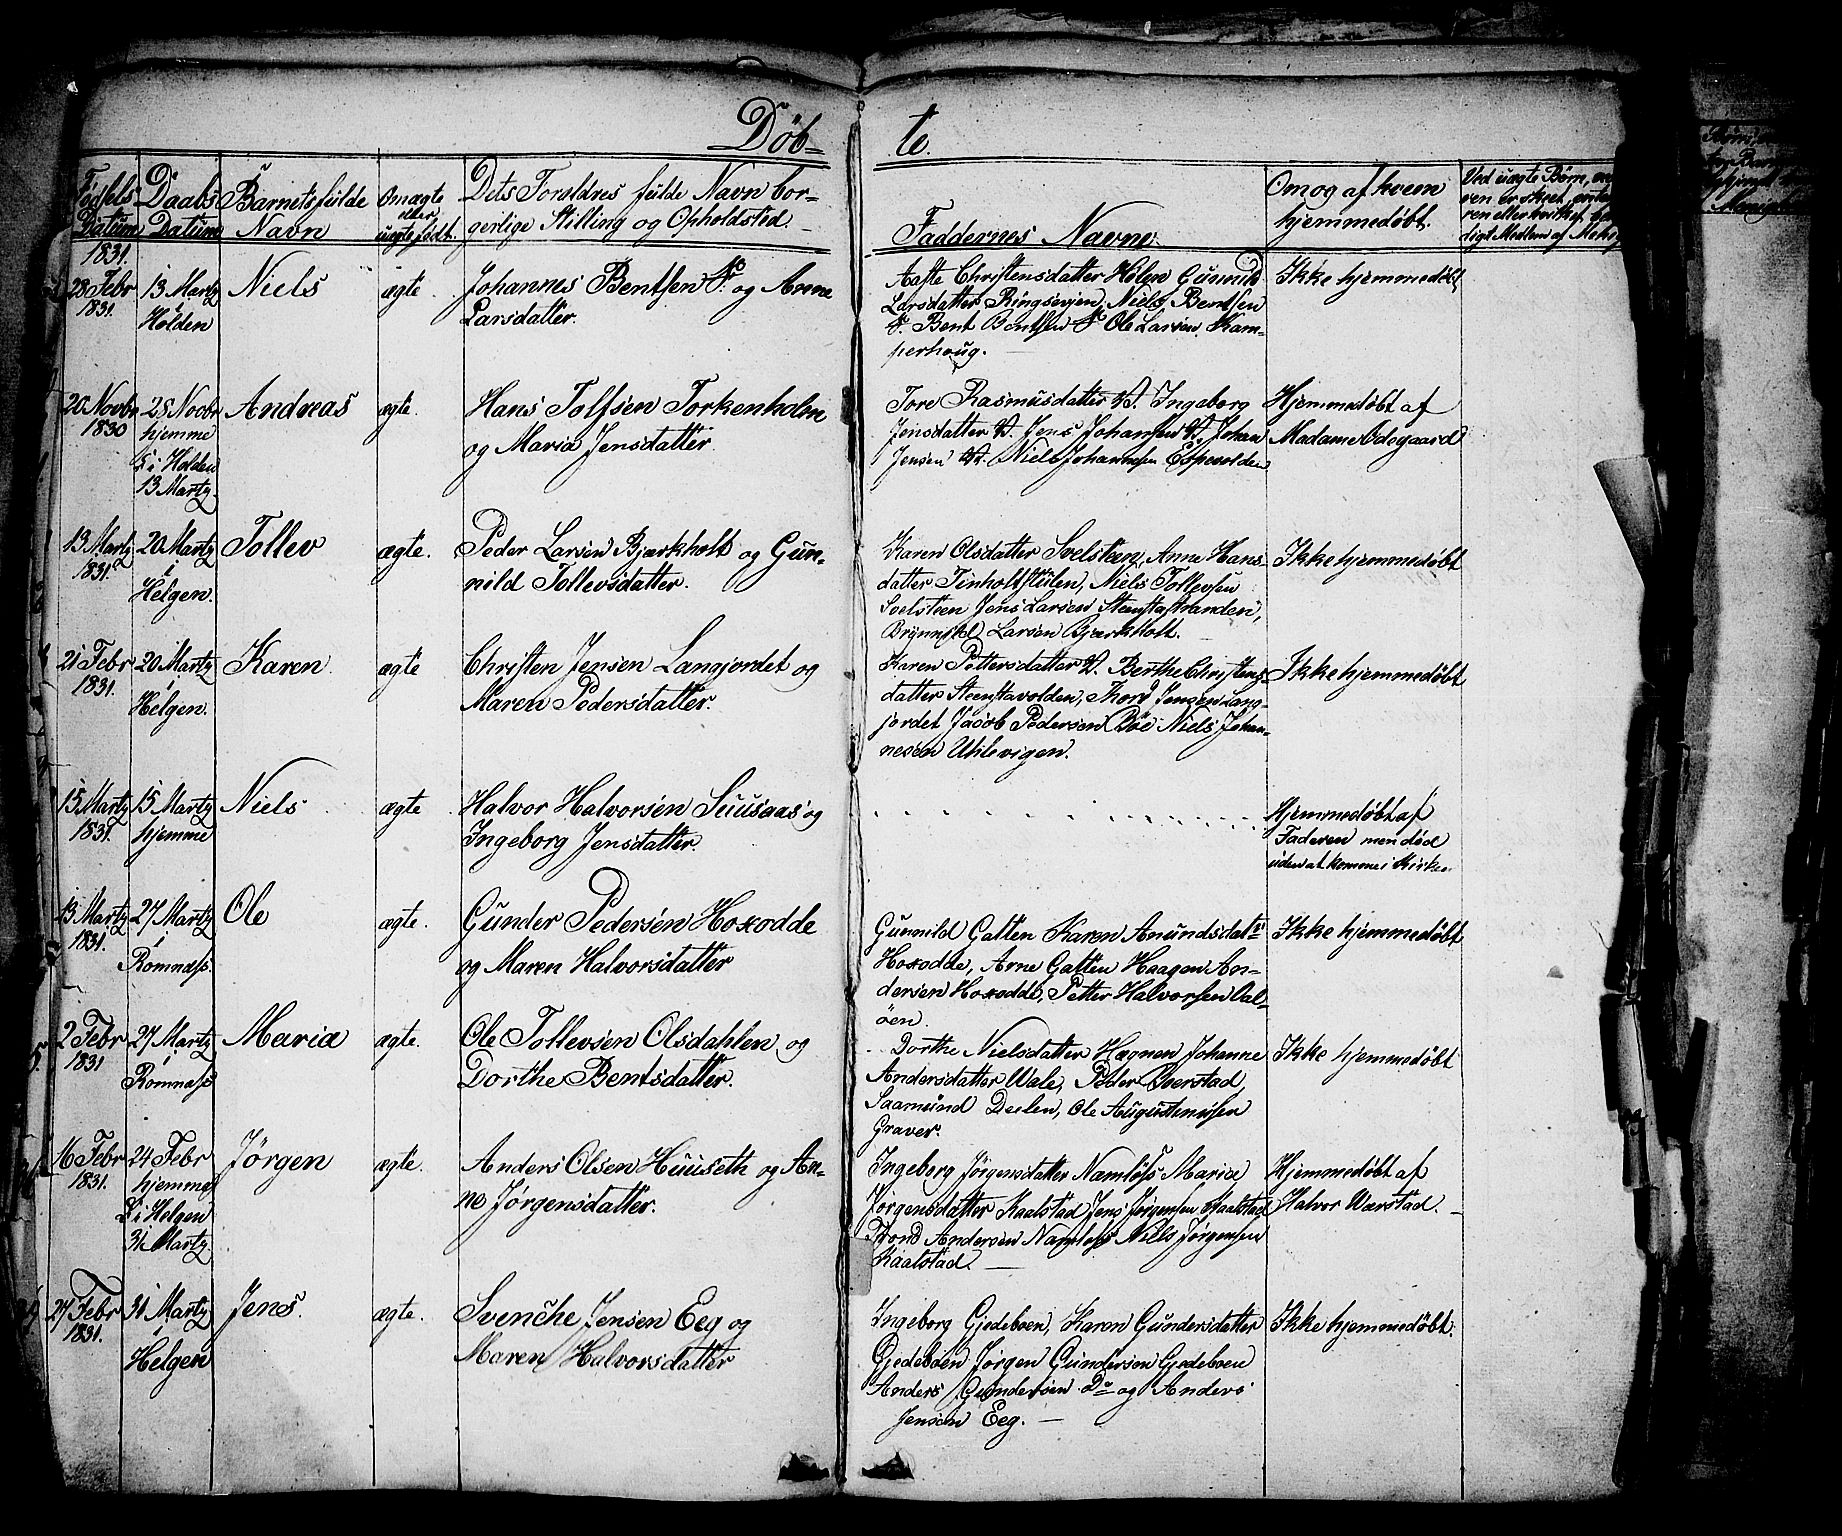 Døb-
te
Fødsels Datum
Daabs Datum
Barnets fulde Navn
Om ægte eller uægte født.
Dets Forældres fulde Navn bor-
gerlige Stilling og Opholdsted.
Faddernes Navne.
Om og af hvem
hjemmedøbt.
Ved uægte Børn,
1831.
28 Febr
1831.
13 Martz
Holden
Niels
ægte.
Johannes Bentsen og Anne
Larsdatter.
Aaste Christensdatter Holen Gunnild
Larsdatter Ringsevjen, Niels Bentsen
Bent Bentsen Ole Larsen Kam-
perhoug.
Ikke hjemmedøbt
20 Novbr
1830
25 Novbr
hjemme
i Holden
13 Martz.
Andreas
ægte.
Hans Tolfsen Torkenholm
og Maria Jensdatter.
Tore Rasmusdatter Ingeborg
Jensdatter Jens Johansen Johan
Jensen Niels Johannesen Espevolden
Hjemmedøbt af
Madame Odegaard
13 Martz
1831.
20 Martz
i
Helgen.
Tollev
ægte.
Peder Larsen Bjærkholt og Gun-
nild Tollevsdatter.
Karen Olsdatter Svelsteen, Anne Hans-
datter Tinholtstulen, Niels Tollevsen
Svelsteen Jens Larsen Steenstastranden,
Brynnild Larsen Bjærkholt.
Ikke hjemmedøbt
21 Febr
1831.
20 Martz
i
Helgen.
Karen.
ægte
Christen Jensen Langjordet og
Maren Pedersdatter.
Karen Pettersdatter Berthe Christens-
datter Steenstavolden, Thord Jensen Lang-
jordet Jacob Pedersen Bøe Niels Johan-
nesen Uhlevigen.
Ikke hjemmedøbt
15 Martz
1831.
15 Martz
hjemme
Niels
ægte
Halvor Halvorsen Suusaas og
Ingeborg Jensdatter.
Hjemmedøbt af
Faderen men død
uden at komme i Kirken
13 Martz
1831.
27 Martz
i
Romnæss.
Ole
ægte.
Gunder Pedersen Hoxodde
og Maren Halvorsdatter
Gunnild Gatten Karen Amundsdatr
Hoxodde, Arne Gatten Haagen An-
dersen Hoxodde, Petter Halvorsen Dal-
øen.
Ikke hjemmedøbt
2 Febr
1831
27 Martz
i
Romnæss
Maria
ægte.
Ole Tollevsen Olsdahlen og
Dorthe Bentsdatter.
Dorthe Nielsdatter Hægnen Johanne
Andersdatter Wale, Peder Verstad,
Saamund Deelen, Ole Augustinusen
Graver.
Ikke hjemmedøbt
16 Febr
1831.
24 Febr
hjemme
i Helgen
31 Martz.
Jørgen
ægte.
Anders Olsen Huuseth og An-
ne Jørgensdatter.
Ingeborg Jørgensdatter Namløss Maria
Jørgensdatter Kaalstad Jens Jørgensen Kaalstad
Trond Andersen Namløss Niels Jørgensen
Kaalstad.
Hjemmedøbt af
Halvor Værstad.
27 Febr
1831.
31 Martz
i
Helgen
Jens.
ægte.
Svenche Jensen Eeg og
Maren Halvorsdatter
Ingeborg Gjedeboen, Karen Gundersdatter
Gjedeboen Jørgen Gundersen Gjedeboen
Anders Gundersen Do og Anders
Jensen Eeg.
Ikke hjemmedøbt.